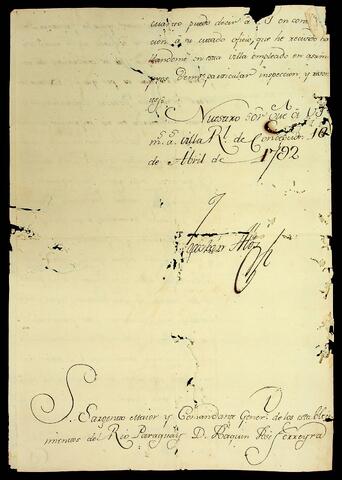 cuanto puedo decir a V.S en con
cion á su citado oficio, que he recivido ha
llandome en esta villa empleado en asun
de mi particular inspeccion y
Nuestro Sor. Que á V.S
m.s a.s villa Rl. de Concepcion 10
de Abril de 1792
S. Sargento Maior y Comandante Gener. de los estableci
mientos del Rio Paraguay D. Joaquin José Ferreyra